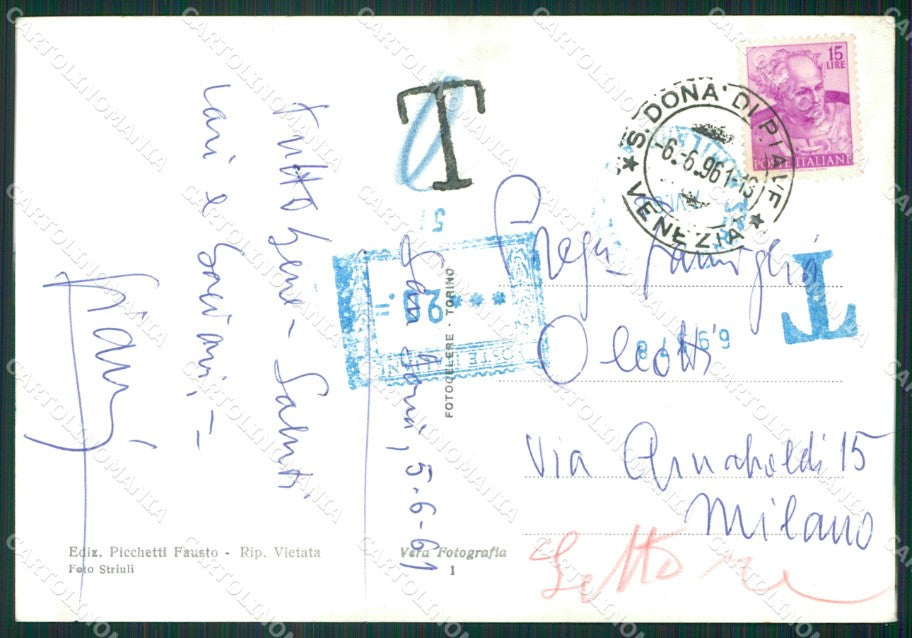 Tutto bene - Saluti
cari e baciani. =
Gianni
San Donà, 5-6-61
Ediz. Picchetti Fausto - Rip. Vietata
Foto Striuli
Vera Fotografia
1
FOTOCELERE - TORINO
T
15
LIRE
POSTE ITALIANE
S. DONA' DI PIAVE
-6.-6.961-13
VENEZIA
T
* * * 20. =
POSTE ITALIANE
Famiglia
Oleotti
Via Arnaboldi 15
Milano
CARTOLINOMANIA